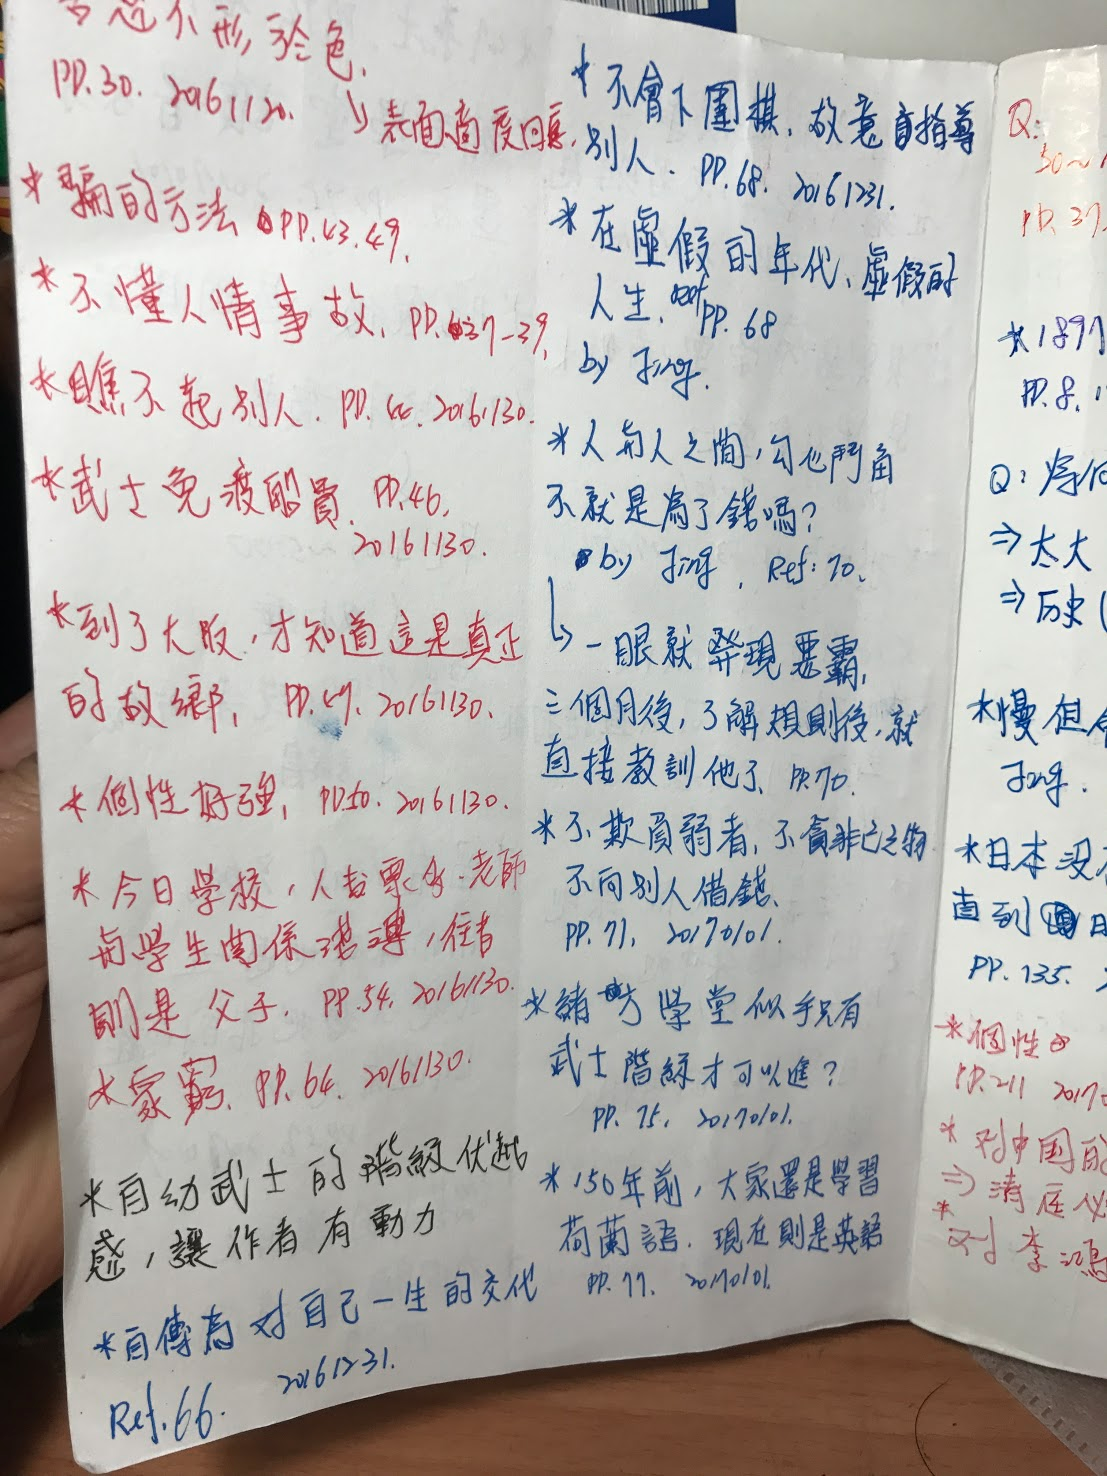 喜怒不形於色.
PP.30. 20161120.
↳ 表面適度回應.
* 騙的方法 PP.43.49.
* 不懂人情事故. PP.37-39.
* 瞧不起別人. PP.44. 20161130.
* 武士兔渡船員. PP.46.
20161130.
* 到了大阪,才知道這是真正
的故鄉. PP.49. 20161130.
* 個性好強. PP.50. 20161130.
* 今日學校,人去 老師
與學生關係 ,往昔
則是父子. PP.54. 20161130.
* 家窮. PP.64. 20161130.
* 自幼武士的階級伏起
感,讓作者有動力
* 自傳為对自己一生的交代
Ref.66. 20161231.
* 不會下圍棋.故意盲指導
別人. PP.68. 20161231.
* 在虛假的年代、虛假的
人生. PP.68
by Jing.
* 人與人之間,勾心鬥角
不就是為了錢嗎?
by Jing. Ref:70.
↳ 一眼就發現惡霸,
三個月後,了解規則後,就
直接教訓他了. PP.70.
* 不欺負弱者,不貪非己之物
不向別人借錢.
PP.71. 20170101.
* 緒方學堂似乎只有
武士階級才可以進?
PP.75. 20170101.
* 150年前,大家還是學習
荷蘭語.現在則是英語
PP.77. 20170101.
Q:
30~
PP.37
* 1897
PP.8.
Q:
⇒ 太大
⇒ 历史(
* 慢但
Jing.
* 日本沒
直到
PP.135.
* 個性
PP.211 2017
* 对中国的
⇒ 清庭必
* 对李鴻